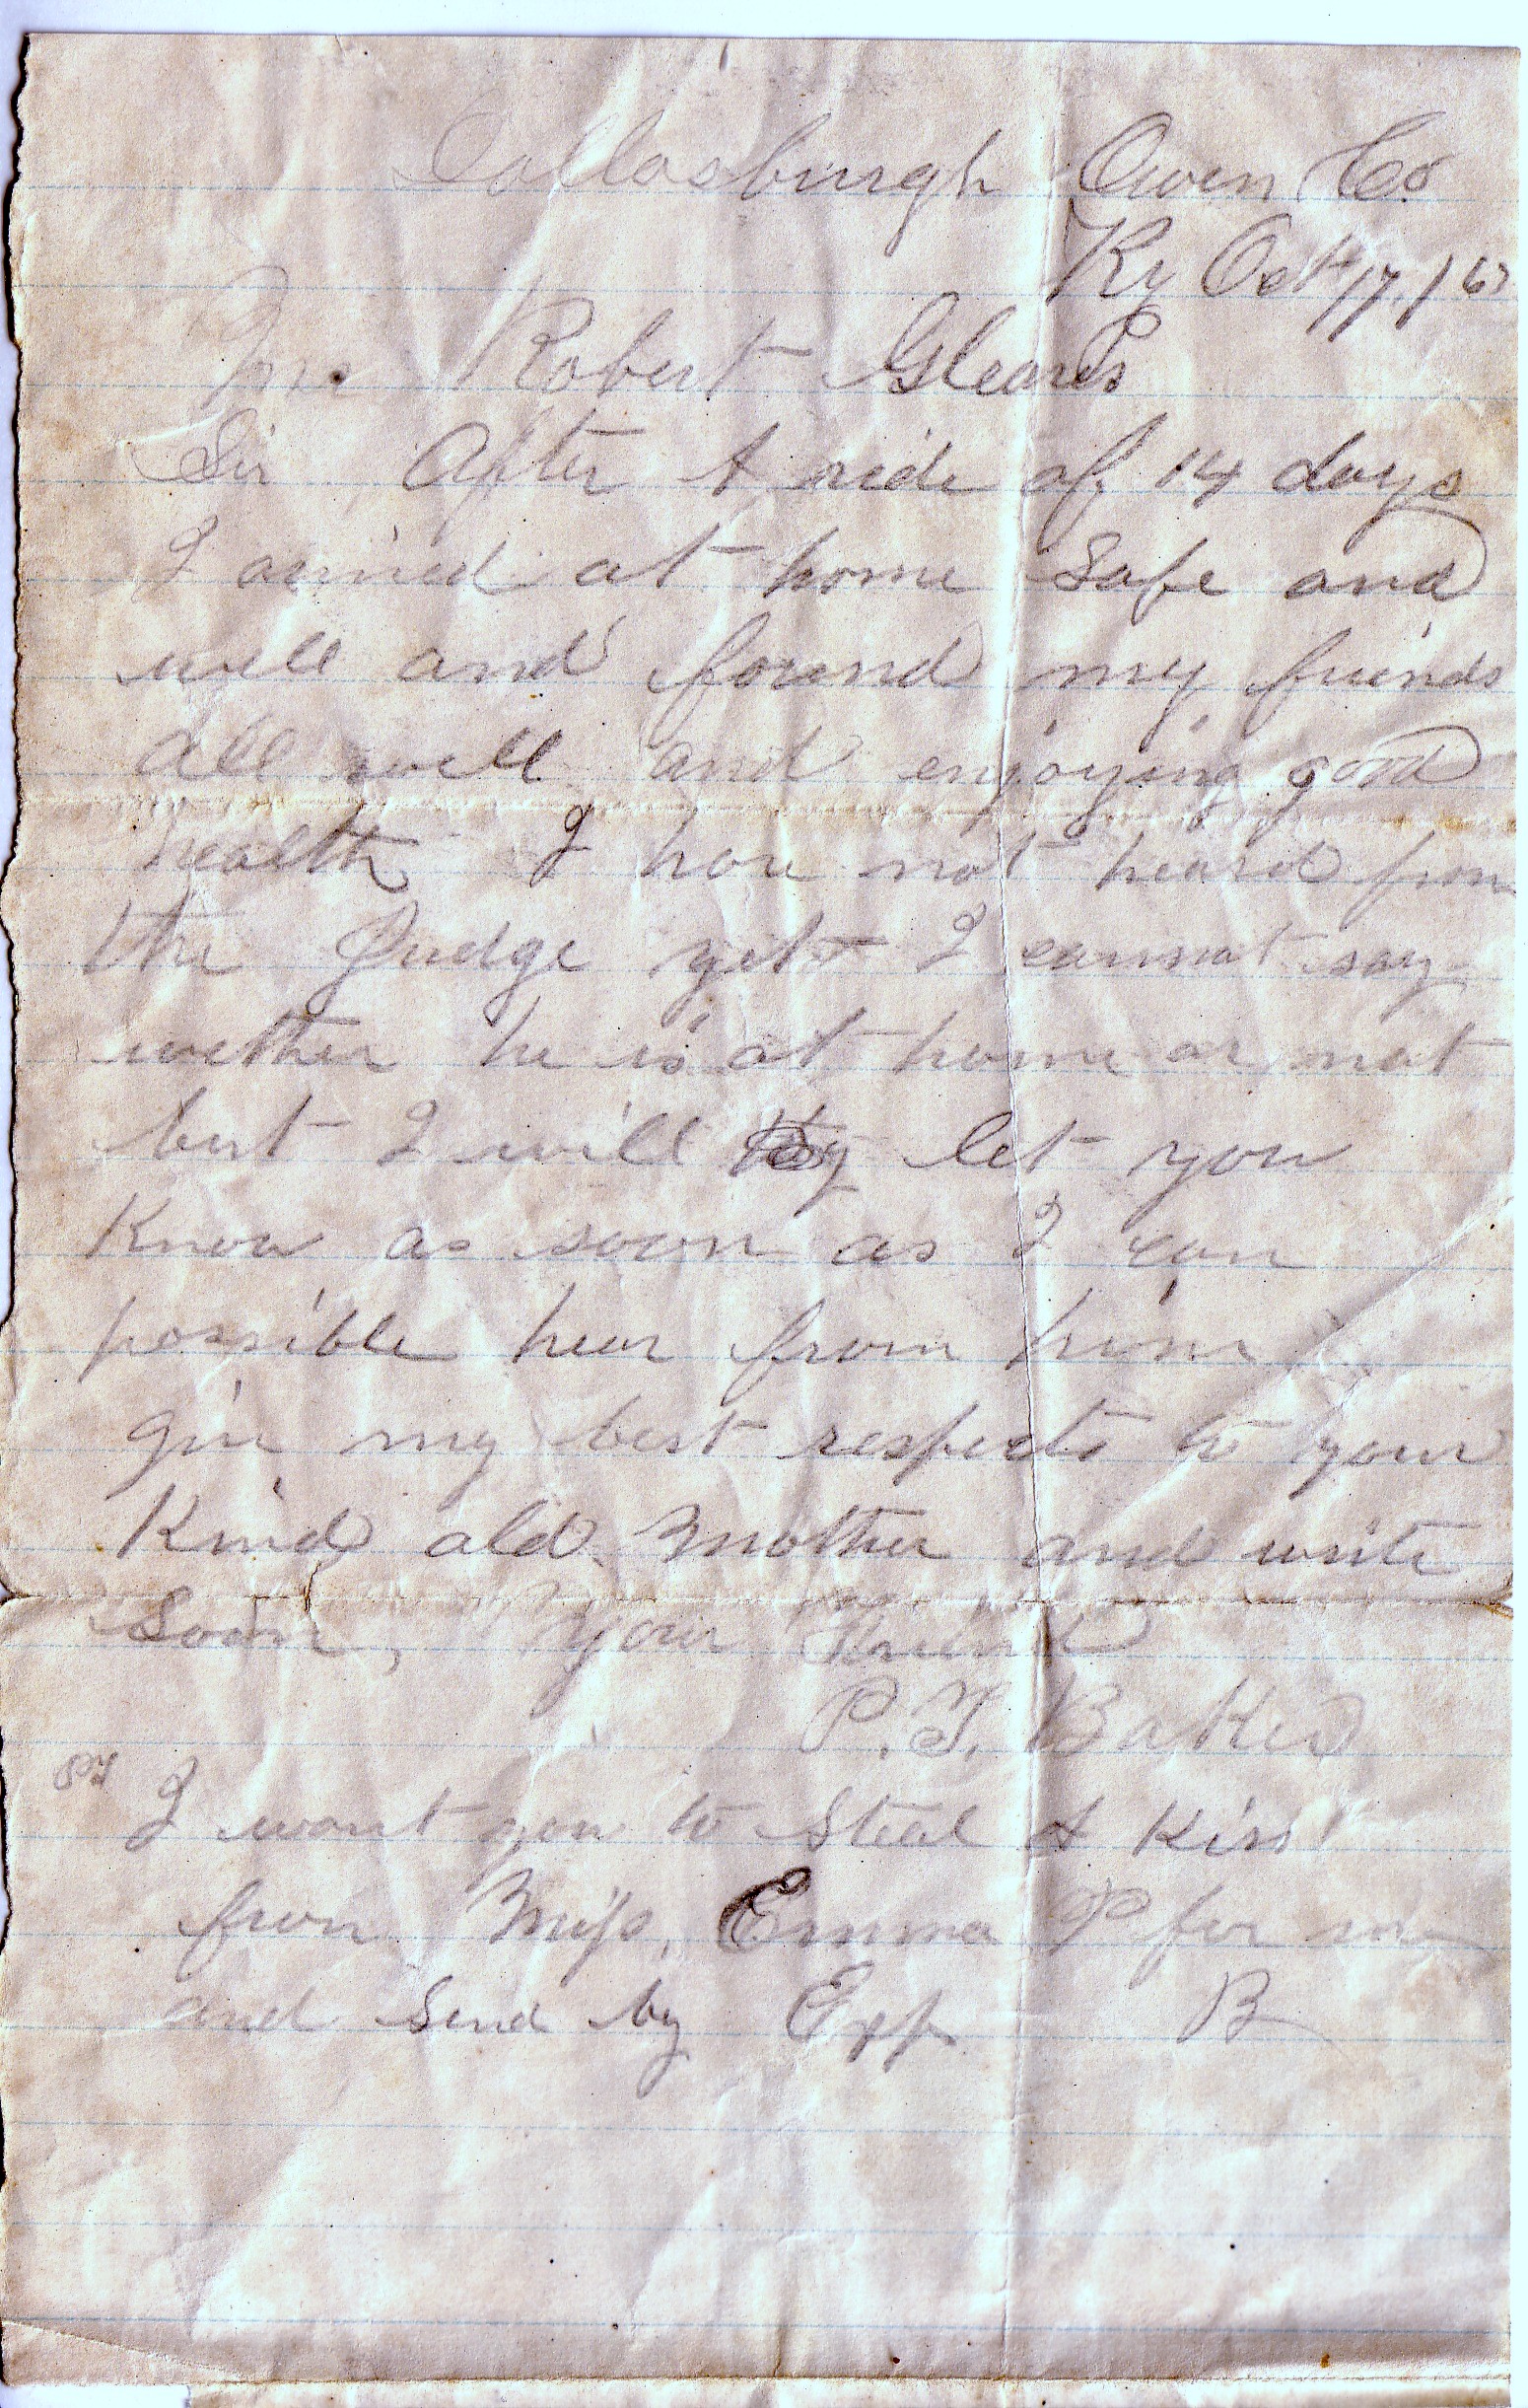 Callasburgh Owen Co
Ky Oct 17, / 63
Mr Robert Gleaves
Sir After A ride of 14 days
I arrived at home Safe and
well and found my friends
all well and enjoying good
health I have not heard from
the Judge yet I cannot say
wether he is at home or not
but I will let you
Know as soon as I can
possible hear from him
give my best respects to your
Kind old Mother and write
Soon, Your Friend
P. T. Baker
I want you to Steal A Kiss
from Miss, Emma P for me
and Send by Exp. B